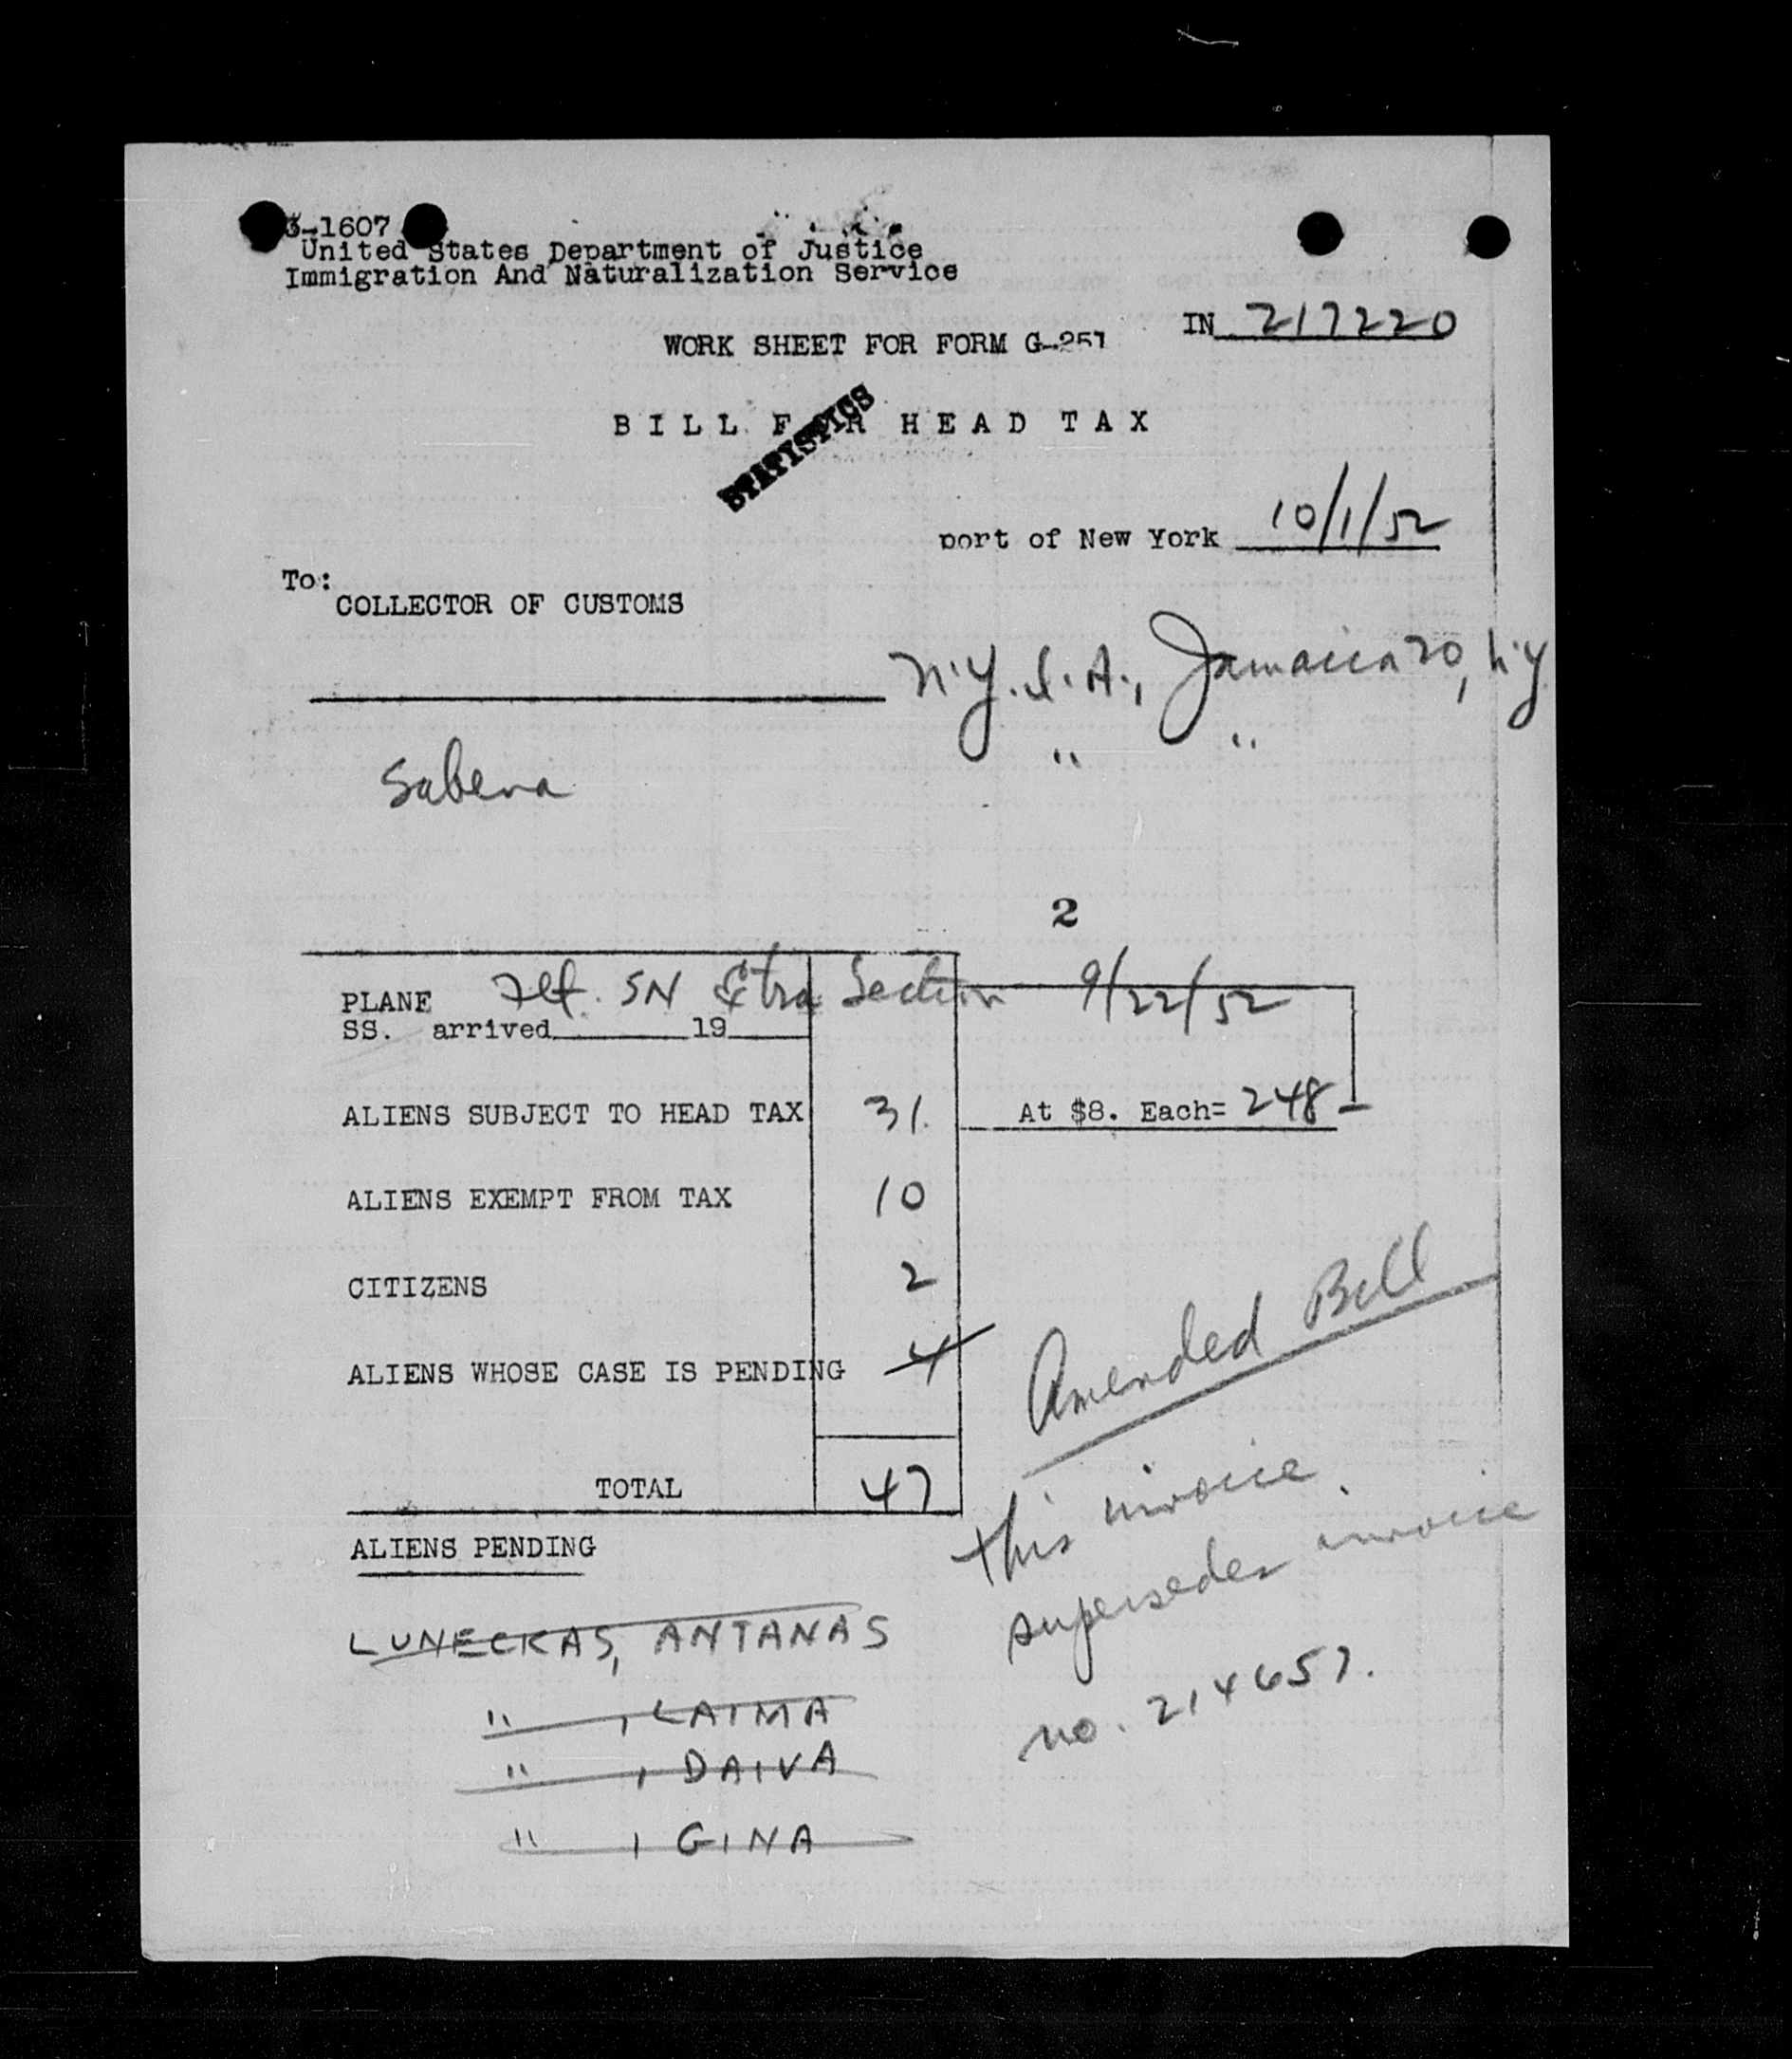 3-1607
United States Department of Justice
Immigration And Naturalization Service
IN 217220
WORK SHEET FOR FORM G-251
BILL FOR HEAD TAX
STATISTICS
port of New York 10/1/52
To:
COLLECTOR OF CUSTOMS
N.Y.I.A., Jamaica 30, N.Y
" "
Sabena
2
PLANE Flt. SN Extra Section 9/22/52
SS. arrived 19
ALIENS SUBJECT TO HEAD TAX 31. At $8. Each= 248-
ALIENS EXEMPT FROM TAX 10
CITIZENS 2
ALIENS WHOSE CASE IS PENDING 4
Amended Bill
TOTAL 47
This invoice
supersedes invoice
no. 214657.
ALIENS PENDING
LUNECKAS, ANTANAS
" , LAIMA
" , DAIVA
" , GINA